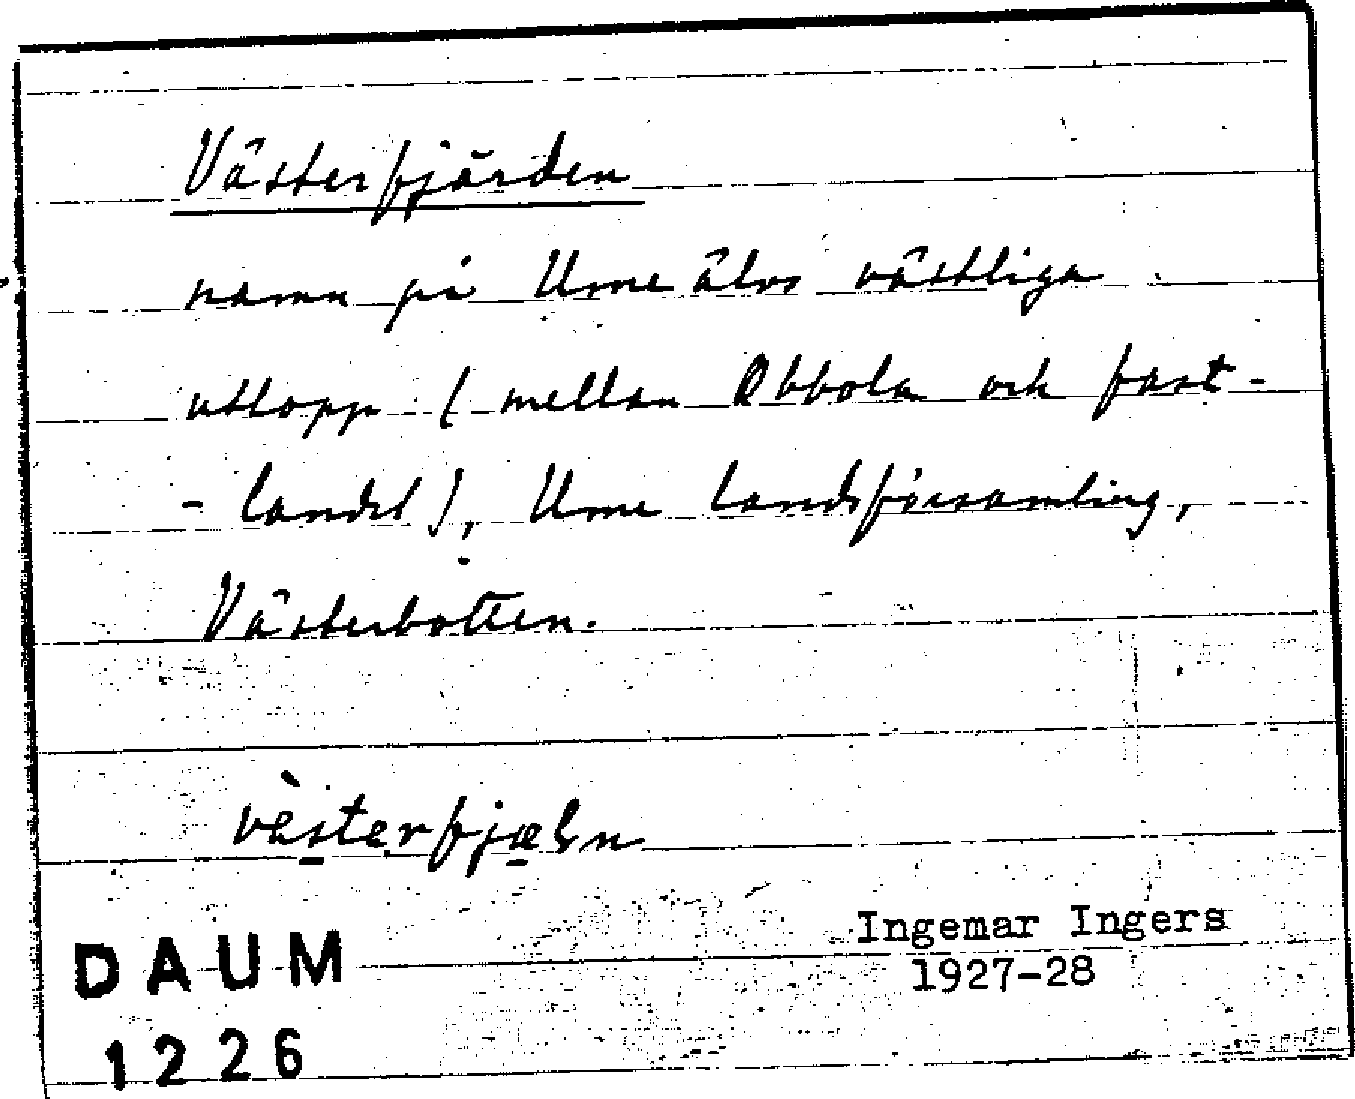 Västerfjärden
namn på Ume älvs västliga
utlopp (mellan Obbola och fast-
- landet), Ume landsförsamling,
Västerbotten.
vèsterfjæLn
Ingemar Ingers
1927-28
DAUM
1226